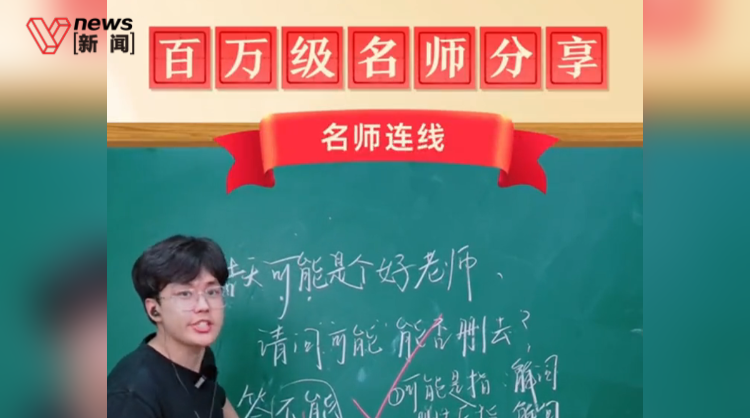 news
[新闻]
百万级名师分享
名师连线
可能是个好老师、
请问可能 能否删去?
答不能
①可能是指 解词
指 解词